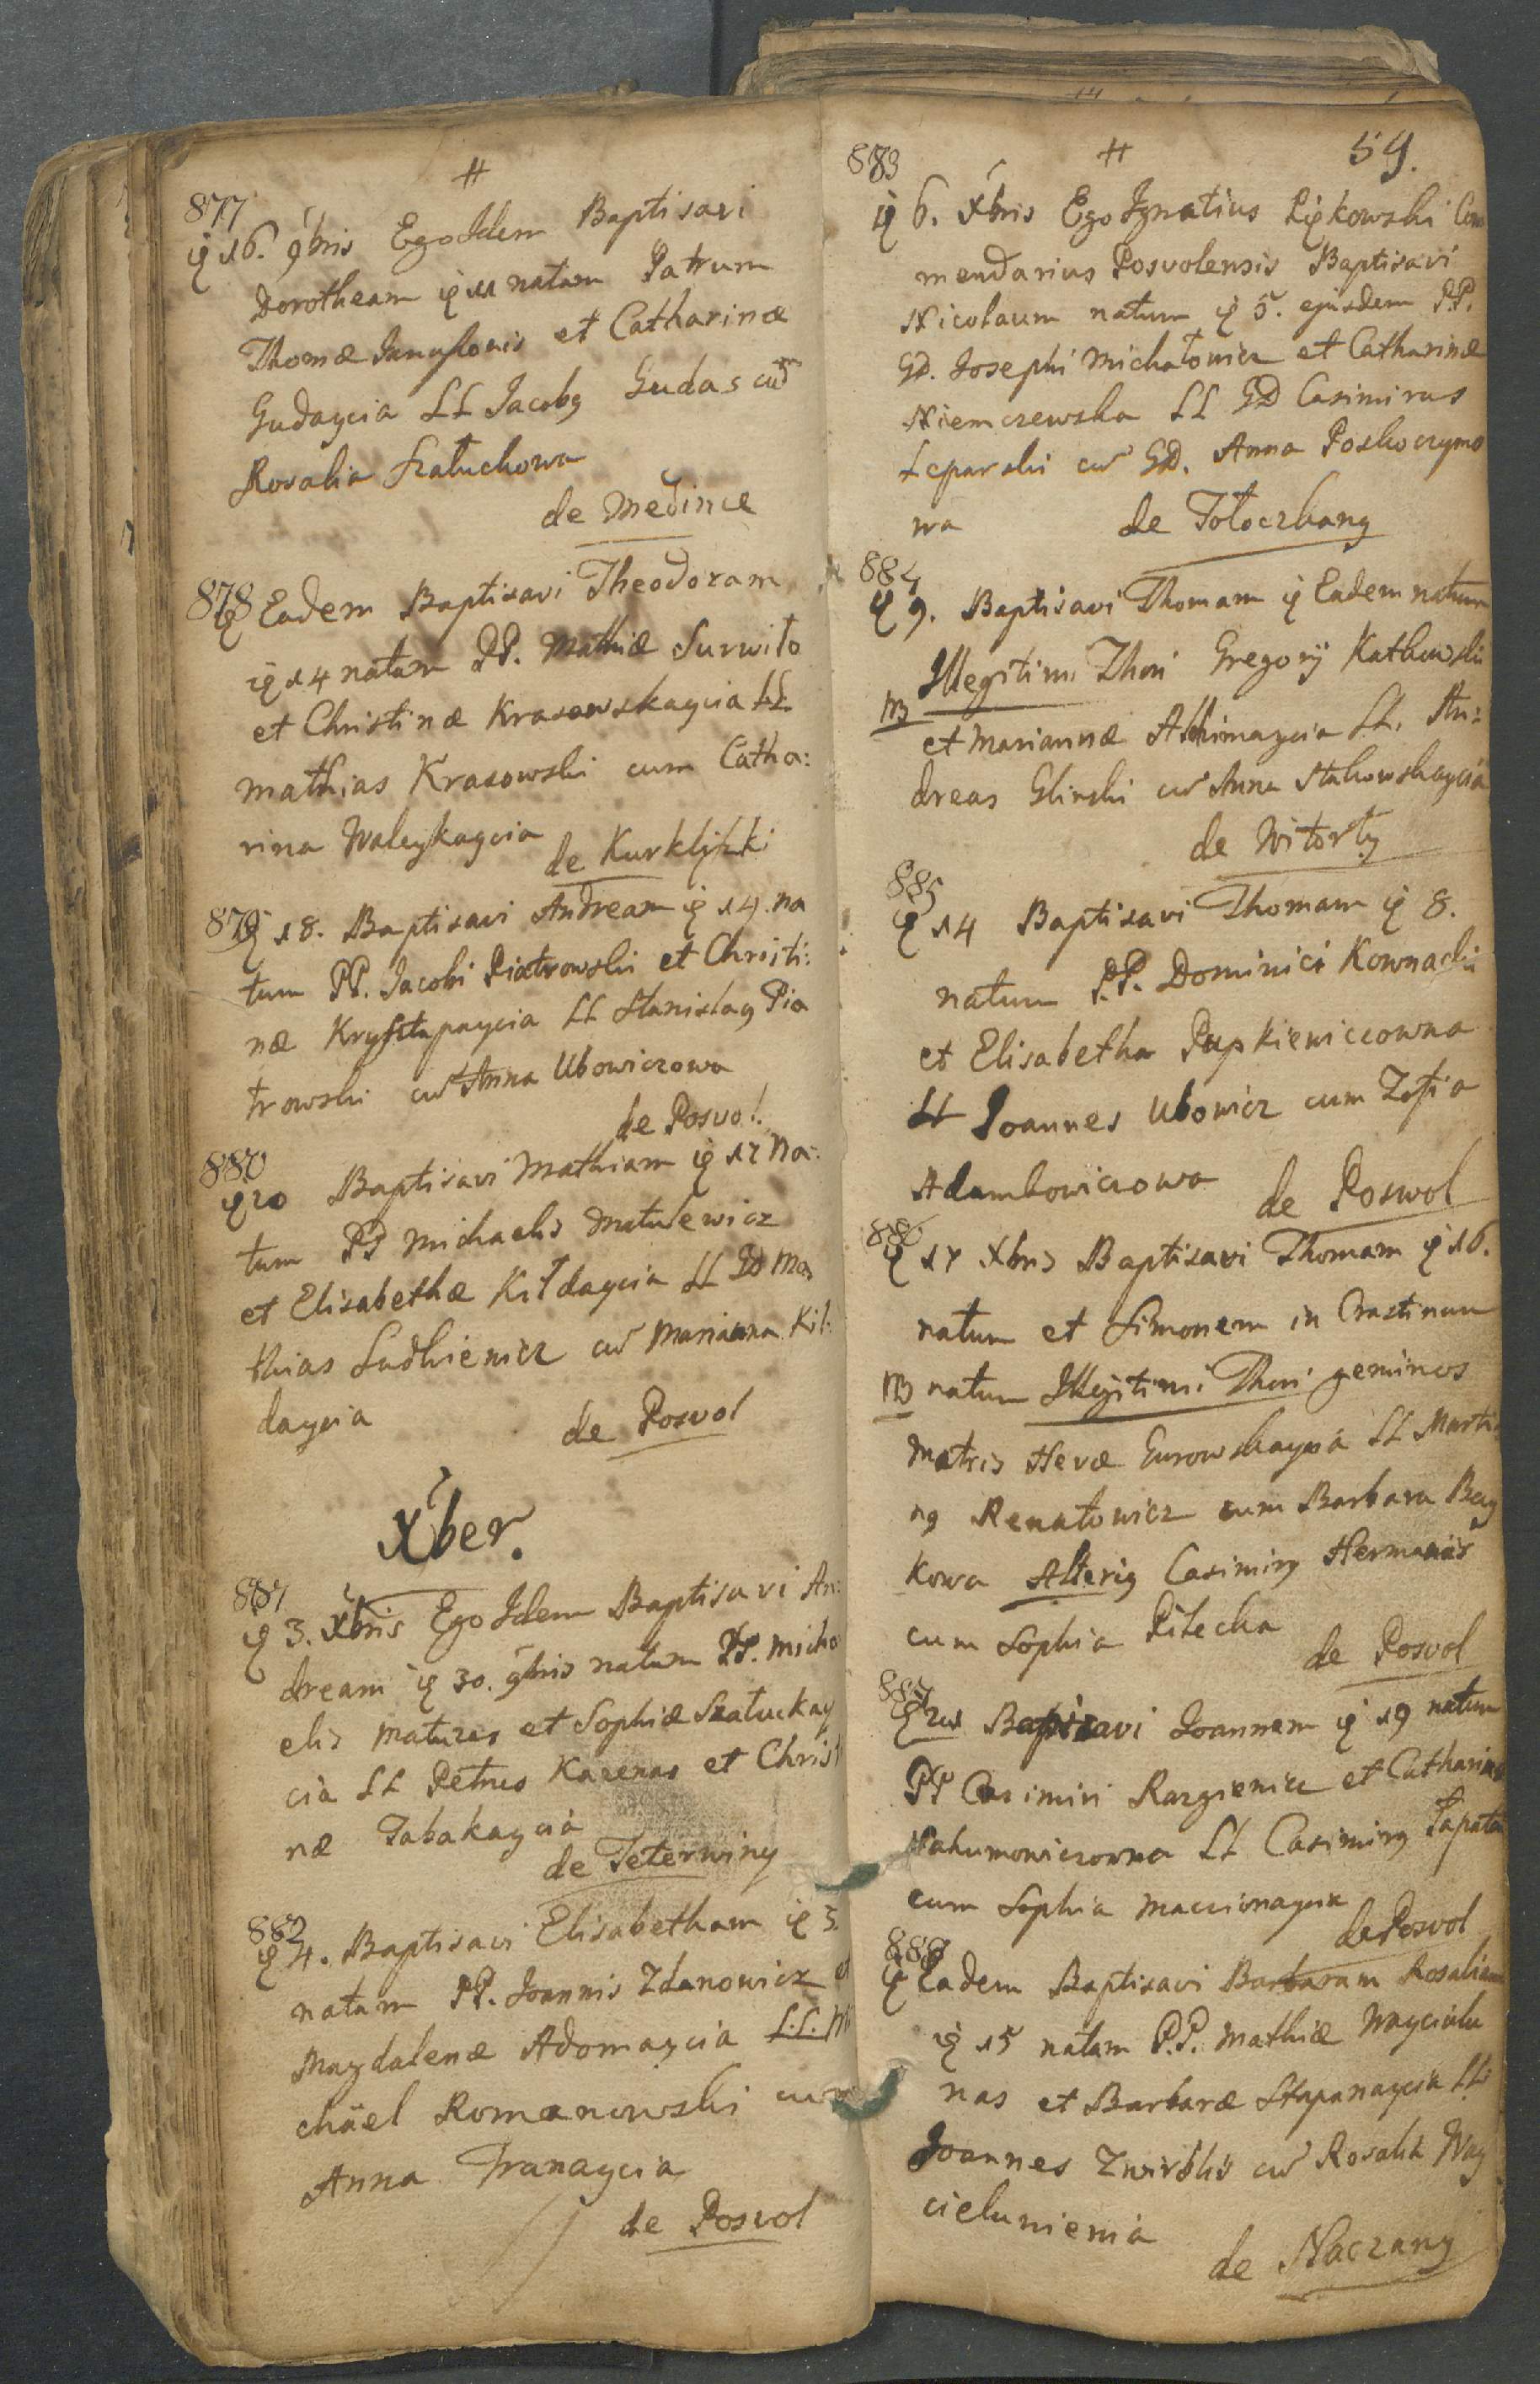 #
877
ę 16. 9bris Ego Idem Baptisavi
Dorotheam ę 11 natam Patrum
Thomæ Janusonis et Catharinæ
Gudaycia LL Jacobg Gudas cu
Rosalia Szatuchowa
de Medince
878
ę Eadem Baptisavi Theodoram
ę 14 natam PP. Mathiæ Surwito
et Christinæ Krasowskaycia LL
Mathias Krasowski cum Catha:
rina Waleykaycia
de Kurkliszki
879
ę 18. Baptisavi Andream ę 14. na
tum PP. Jacobi Piatrowski et Christi:
næ Krysztapaycia LL Stanislag Pia
trowski cu Anna Ubowiczowa
de Posvol.
880
ę 20 Baptisavi Mathiam ę 17 Na:
tum PP Michaelis Matulewicz
et Elisabethæ Kiłdaycia LL GD Ma
thias Sudkiewicz cu Marianna Kil:
daycia
de Posvol
Xber.
881
ę 3. Xbris Ego Idem Baptisavi An:
dream ę 30. 9bris natum PP. Micha
elis Matuzes et Sophiæ Szatuckay
cia LL Petrus Karenas et Christi
næ Tabakaycia
de Teterwiny
882
ę 4. Baptisavi Elisabetham ę 3.
natam PP. Joannis Zdanowicz et
Magdalenæ Adomaycia L.L. Mi
chäel Romanowski cum
Anna Tranaycia
de Posvol
# 59.
883
ę 6. Xbris Ego Ignatius Piękowski Com
mendarius Posvolensis Baptisavi
Nicolaum natum ę 5. ejusdem PP.
GD. Josephi Michałowicz et Catharinæ
Niemczewska LL GD Casimirus
Łeparski cu GD. Anna Poskoczymo
wa
de Tołoczkany
884
ę 9. Baptisavi Thomam ę Eadem natum
Illegitimi Thori Gregorij Katkowski
NB
et Mariannæ Akhimaycia LL. An:
dreas Glinski cu Anna Stakowskaycia
de Witorty
885
ę 14 Baptisavi Thomam ę 8.
natum P.P. Dominici Kownacki
et Elisabetha Pupkiewiczowna
LL Joannes Ubowicz cum Zofia
Adambowiczowa
de Poswol
886
ę 17 Xbris Baptisavi Thomam ę 16.
natum et Simonem in Crastinum
NB natum Illegitimi Thori geminos
Matris Hevæ Gurowskaycia LL Marti
ng Renatowicz cum Barbara Bay
kowa Alterig Casimirg Hermanis
cum Sophia Pitecka
de Posvol
887
ę 21 Baptizavi Joannem ę 19 natum
PP Casimiri Razgiewicz et Catharinæ
Nahumowiczowna LL Casimirg Łapata
cum Sophia Maccionaycia
de Posvol
888
ę Eadem Baptisavi Barbaram Rosaliam
ę 15 natam P.P. Mathiæ Wayciulu
nas et Barbaræ Stapanaycia LL
Joannes Zwirblis cu Rosalia Way
cielunienia
de Naczany